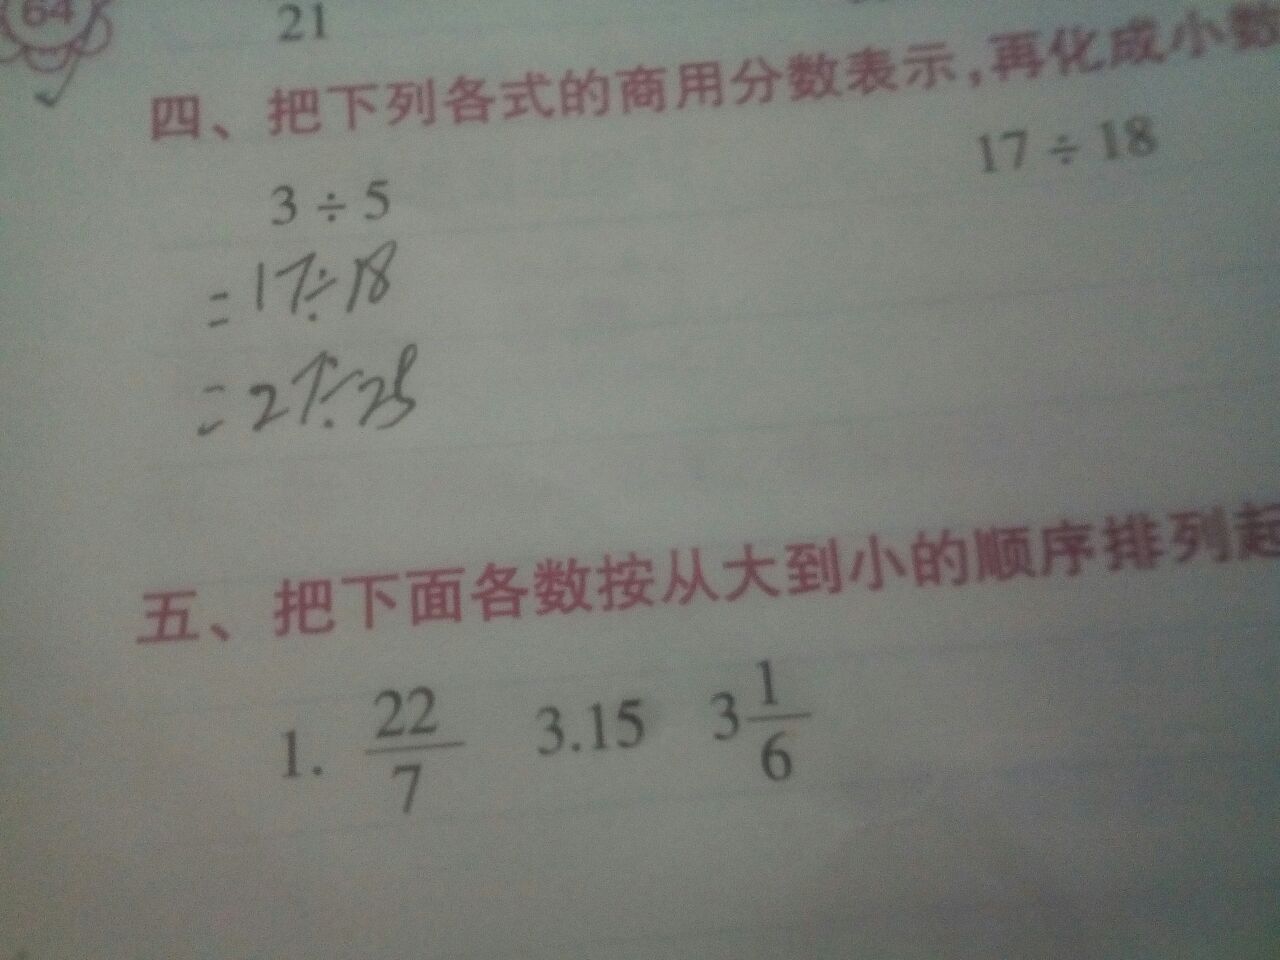 64
21
四、把下列各式的商用分数表示,再化成小数
3 ÷ 5 17 ÷ 18
= 17÷18
= 27÷25
五、把下面各数按从大到小的顺序排列起
1. 22/7 3.15 3 1/6